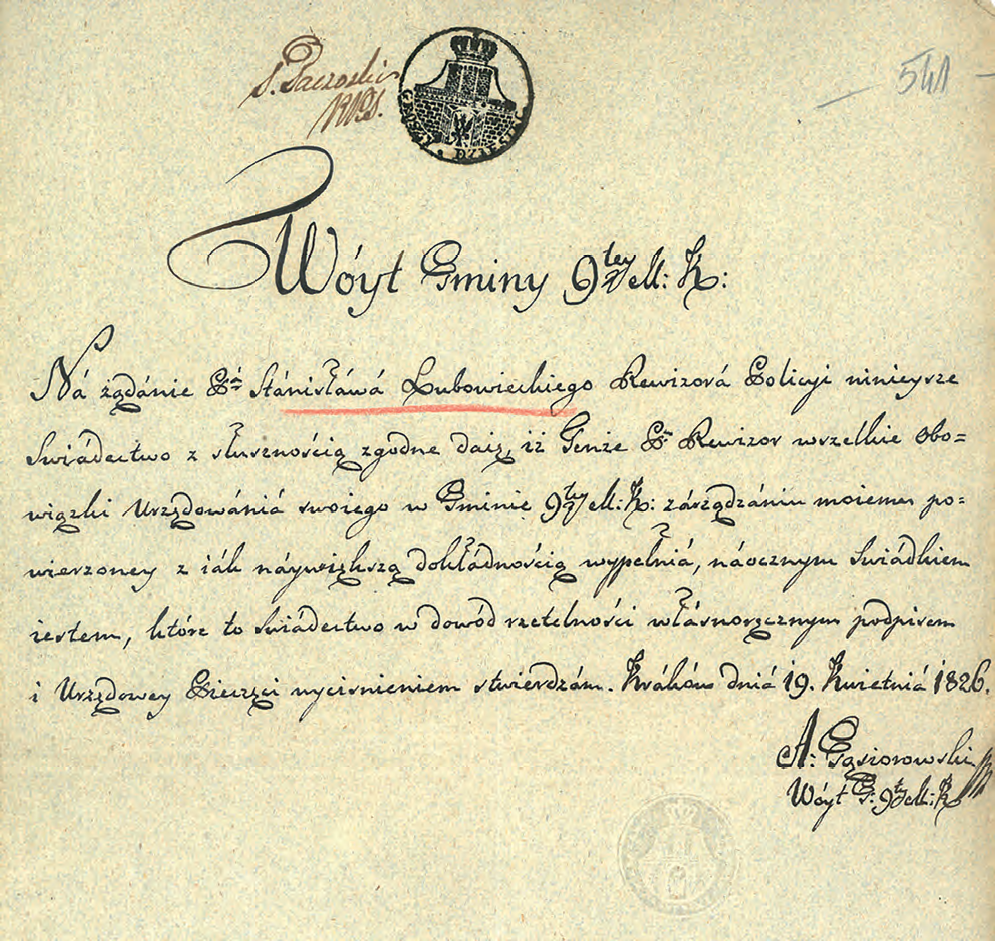 541
S. Paczoski
GROSZY DZIESIĘĆ
Wóyt Gminy 9tey M: K:
Ná żądánie Pá Stánisłáwá Łubowieckiego Rewizorá Policyi ninieysze
Swiádectwo z słusznością zgodne daię, iż Tenże Pn Rewizor wszelkie obo=
wiązki Urzędowániá swoiego w Gminie 9tey M: K: zárządzániu moiemu po=
wierzoney z iák náywiększą dokłádnością wypełniá, náocznym Swiádkiem
iestem, które to swiádectwo w dowód rzetelności włásnoręcznym podpisem
i Urzędowey Pieczęci wycisnieniem stwierdzám. Kráków dniá 19. Kwietniá 1826.
A: Gąsiorowski
Wóyt G: 9tey M: K